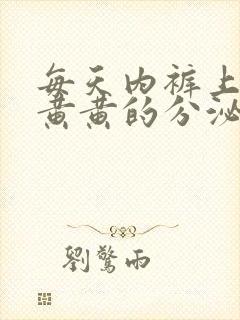 每天内裤上
黄黄的分泌
劉驚雨